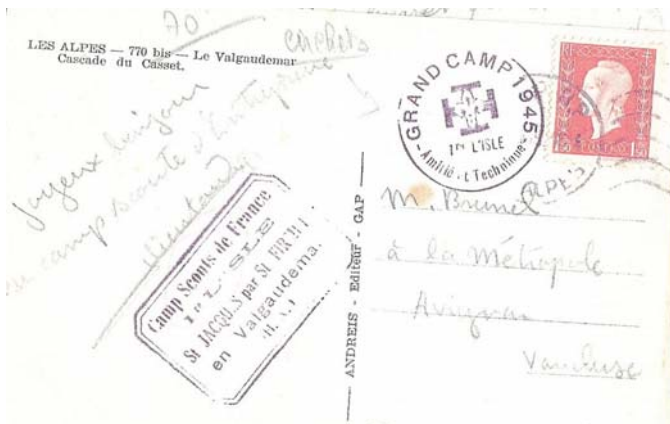 70
cachets
LES ALPES — 770 bis — Le Valgaudemar
Cascade du Casset.
Joyeux bonjour
camp scoute d'Entreprise
Camp Scouts de France
1re L'ISLE
St JACQUES par St FIRMIN
en Valgaudemar
ANDREIS - Editeur - GAP
GRAND CAMP 1945
1re L'ISLE
- Amitié et Technique -
1F50
ALPES
M. Brunel
à la Métropole
Avignon
Vaucluse